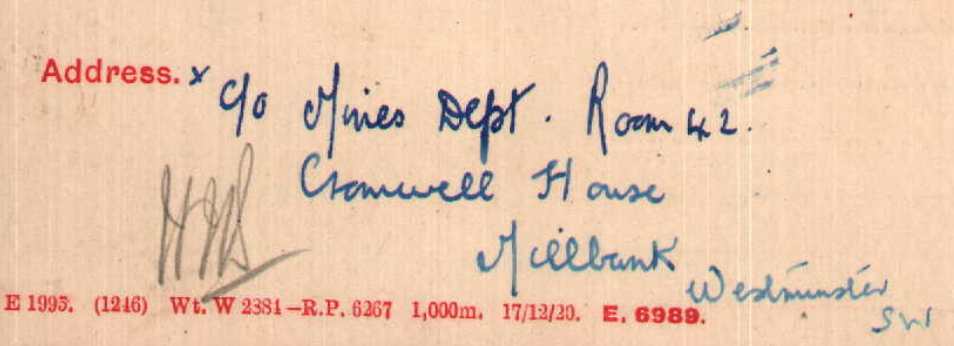 Address. x c/o Mines Dept. Room 42.
Cromwell House
Millbank
Westminster
SW
E 1995. (1246) Wt. W 2384—R.P. 6267 1,000m. 17/12/20. E. 6989.